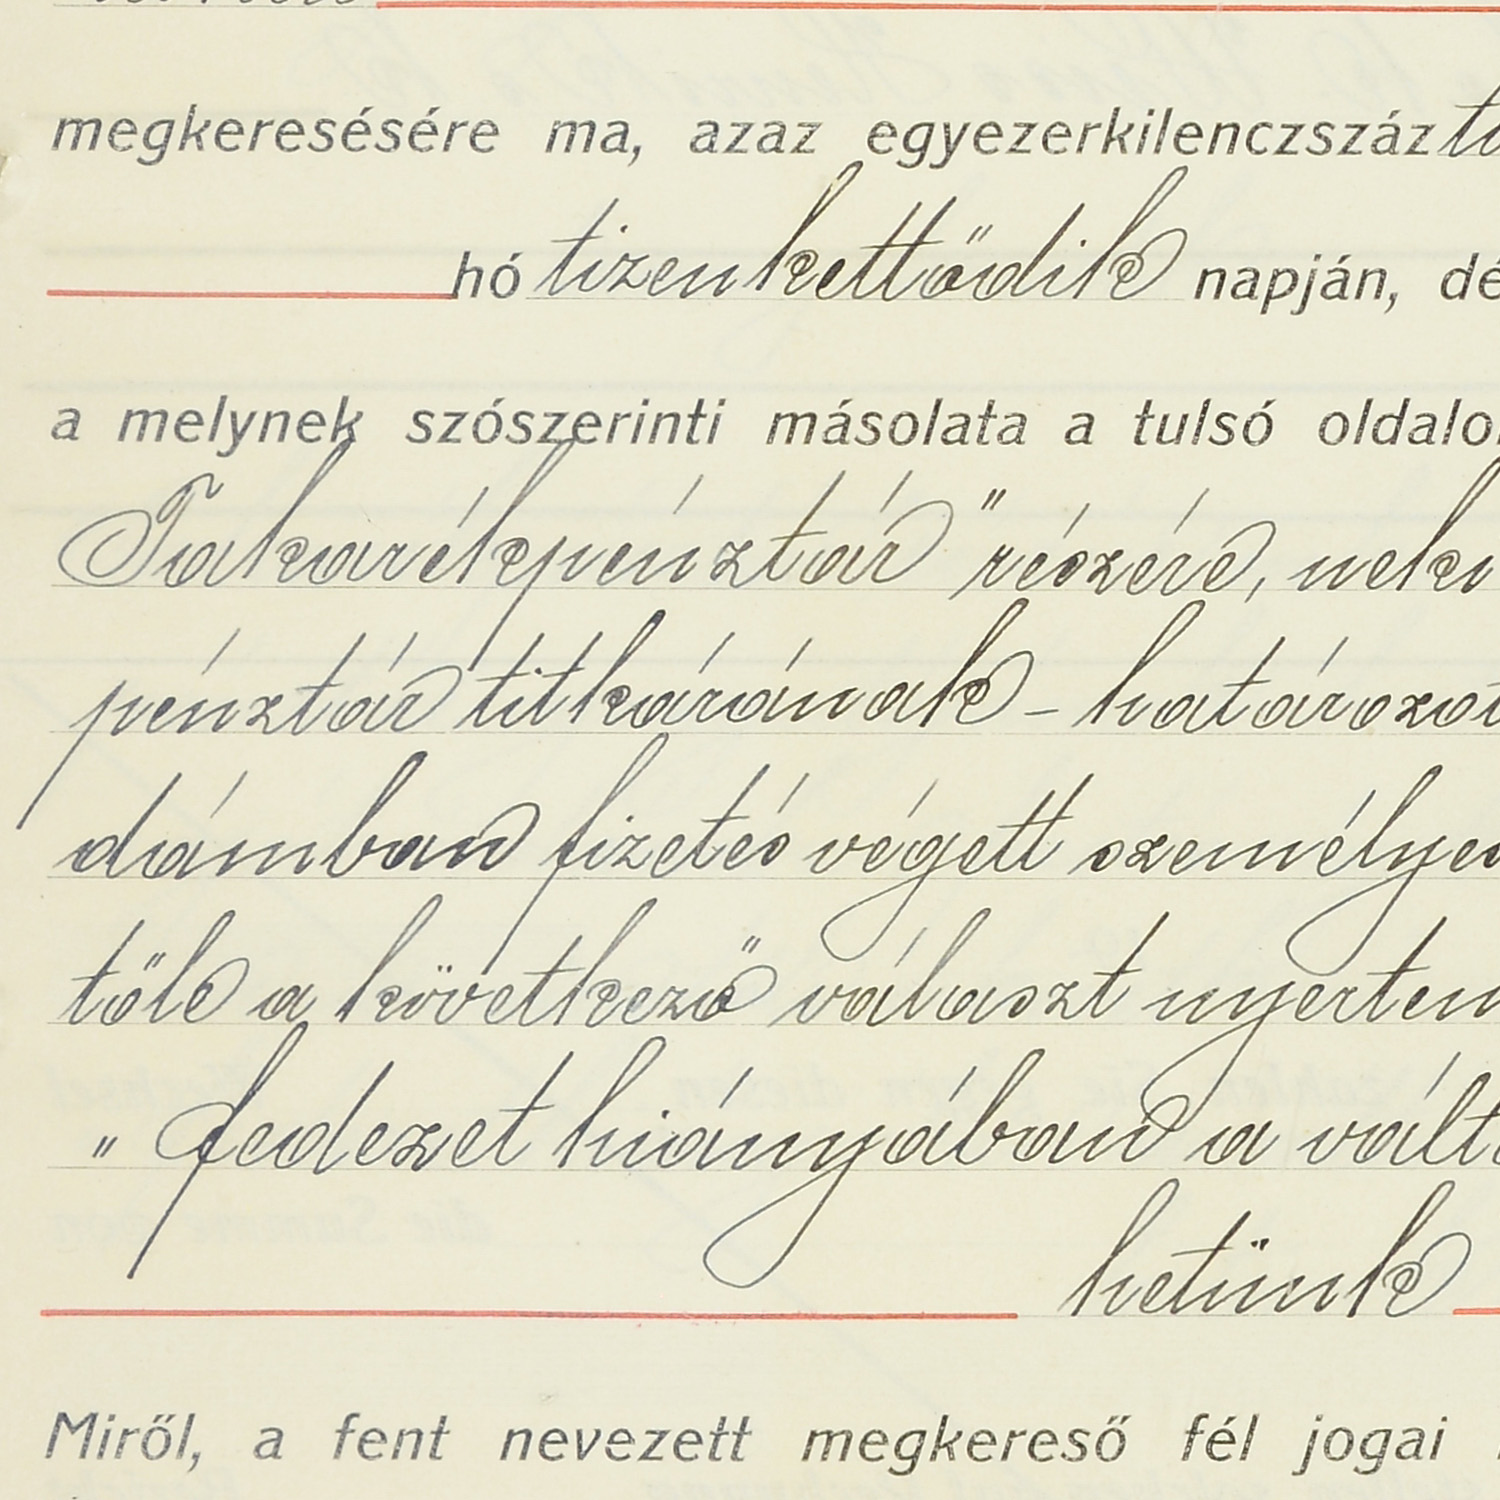 megkeresésére ma, azaz egyezerkilenczszáz
hó tizenkettődik napján, dé
a melynek szószerinti másolata a tulsó oldalo
Takarékpénztár" részére, neki
pénztár titkárának – határozot
dámban fizetés végett személyes
tőle a következő választ nyertem
„ fedezet hiányában a vált
hetünk
Miről, a fent nevezett megkereső fél jogai